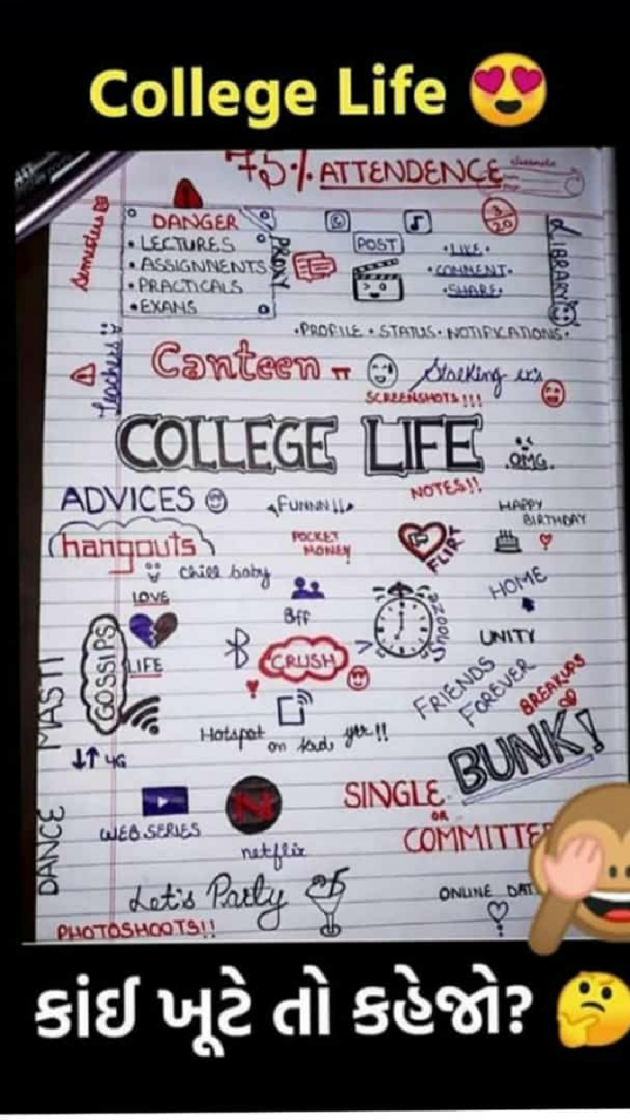 College Life 😍
75% ATTENDENCE
Semesters
DANGER
• LECTURES
• ASSIGNMENTS
• PRACTICALS
• EXAMS
PROXY
POST
3/20
• LIKE •
• COMMENT •
• SHARE •
LIBRARY
• PROFILE • STATUS • NOTIFICATIONS •
Teachers
Canteen
Stalking ex's
SCREENSHOTS!!!
COLLEGE LIFE
.OMG.
ADVICES
FUNNN!!
NOTES!!
HAPPY
BIRTHDAY
Changouts
POCKET
MONEY
FLIRT
Chill baby
LOVE
LIFE
Bff
Snooze
HOME
UNITY
GOSSIPS
CRUSH
FRIENDS
FOREVER
BREAKUPS
MASTI
Hotspot on kad yrr!!
4G
BUNK!
WEB SERIES
N
netflix
SINGLE
OR
COMMITTE
DANCE
Let's Party
ONLINE DAT
PHOTOSHOOTS!!
કાંઈ ખૂટે તો કહેજો? 🤔